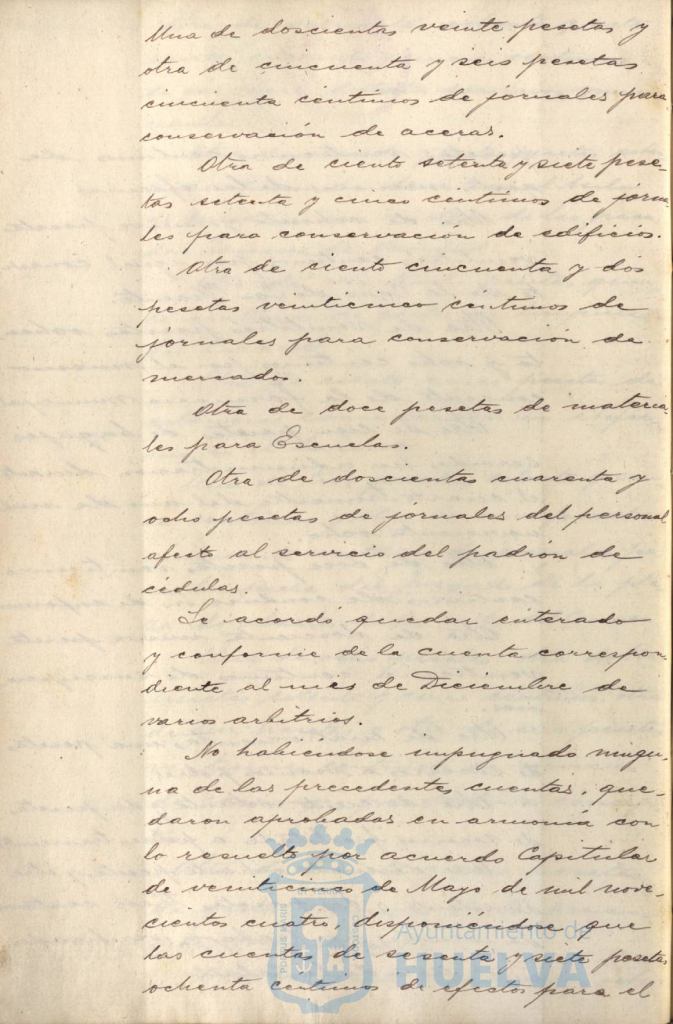 Una de doscientas veinte pesetas y
otra de cincuenta y seis pesetas
cincuenta céntimos de jornales para
conservación de aceras.
Otra de ciento setenta y siete pese-
tas setenta y cinco céntimos de jorna-
les para conservación de edificios.
Otra de ciento cincuenta y dos
pesetas veinticinco céntimos de
jornales para conservación de
mercados.
Otra de doce pesetas de materia-
les para Escuelas.
Otra de doscientas cuarenta y
ocho pesetas de jornales del personal
afecto al servicio del padrón de
cédulas.
Se acordó quedar enterado
y conforme de la cuenta correspon-
diente al mes de Diciembre de
varios arbitrios.
No habiéndose impugnado ningu-
na de las precedentes cuentas, que-
daron aprobadas en armonía con
lo resuelto por acuerdo Capitular
de veinticinco de Mayo de mil nove-
cientos cuatro, disponiéndose que
las cuentas de sesenta y siete pesetas
ochenta céntimos de efectos para el
Ayuntamiento de
HUELVA